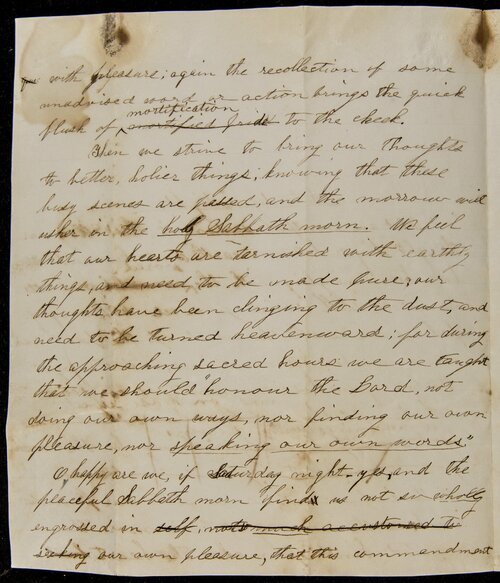 with pleasure; again the recollection of some
unadvised word or action brings the quick
mortification
flush of mortified pride to the cheek.
Then we strive to bring our thoughts
to better, holier things; knowing that these
busy scenes are passed, and the morrow will
usher in the holy Sabbath morn. We feel
that our hearts are tarnished with earthly
things, and need to be made pure; our
thoughts have been clinging to the dust, and
need to be turned heavenward; for during
the approaching sacred hours we are taught
that we should "honour the Lord, not
doing our own ways, nor finding our own
pleasure, nor speaking our own words"
O happy are we, if Saturday night - yes, and the
peaceful Sabbath morn "finds us not so wholly
engrossed in self, not much accustomed to
seeking our own pleasure, that this commandment